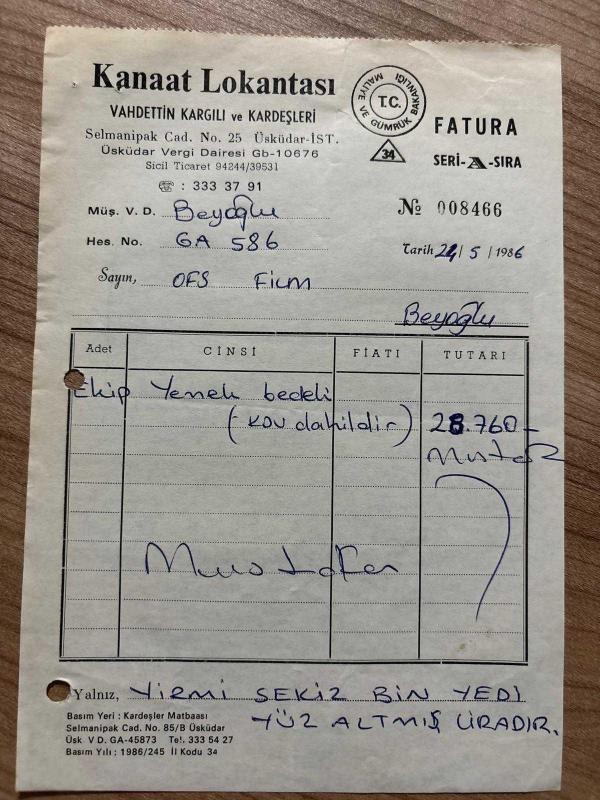 Kanaat Lokantası
VAHDETTİN KARGILI ve KARDEŞLERİ
Selmanipak Cad. No. 25 Üsküdar-İST.
Üsküdar Vergi Dairesi Gb-10676
Sicil Ticaret 94244/39531
☎ : 333 37 91
T.C.
MALİYE VE GÜMRÜK BAKANLIĞI
34
FATURA
SERİ-A-SIRA
Müş. V. D. Beyoğlu
№ 008466
Hes. No. GA 586
Tarih 24/5/1986
Sayın, OFS Film
Beyoğlu
Adet CİNSİ FİATI TUTARI
Ekip Yemek bedeli
(KDV dahildir) 28.760-
Mustafa
Yalnız, YİRMİ SEKİZ BİN YEDİ
YÜZ ALTMIŞ LİRADIR.
Basım Yeri : Kardeşler Matbaası
Selmanipak Cad. No. 85/B Üsküdar
Üsk V D. GA-45873 Tel. 333 54 27
Basım Yılı : 1986/245 İl Kodu 34